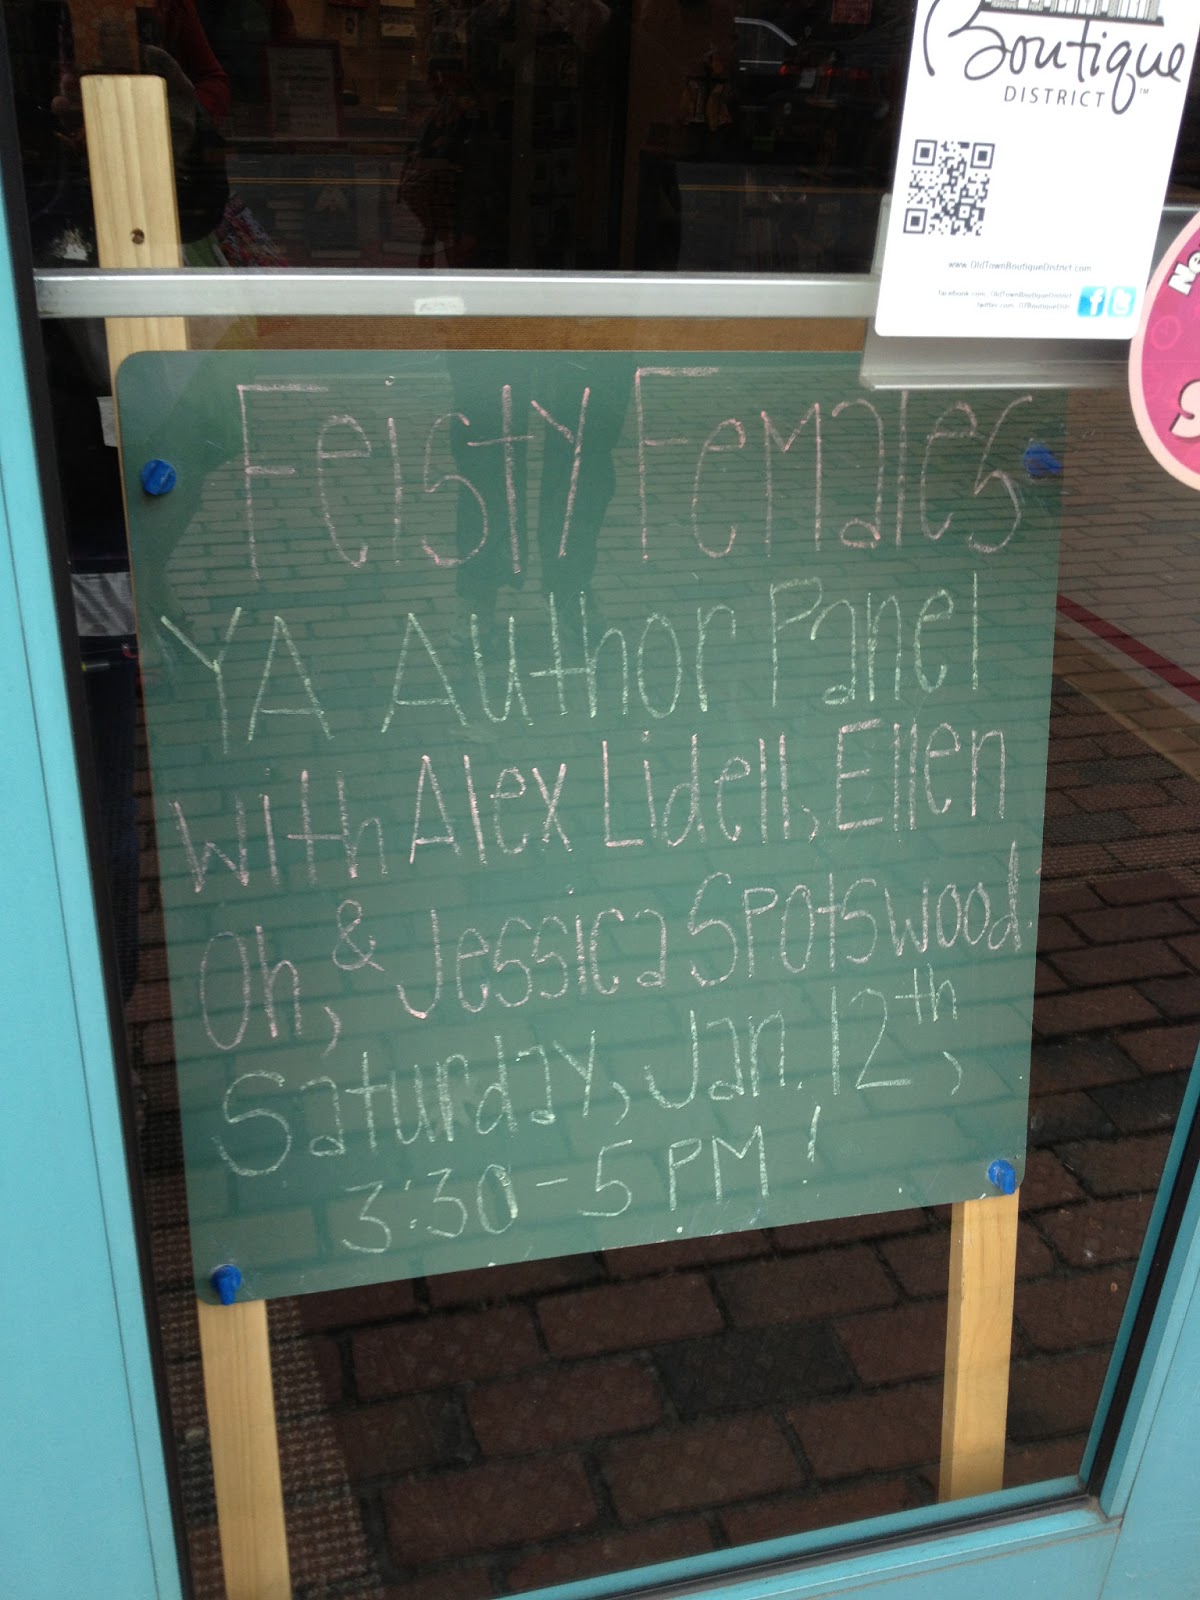 Boutique
DISTRICT™
www.OldTownBoutiqueDistrict.com
Feisty Females
YA Author Panel
with Alex Lidell, Ellen
Oh, & Jessica Spotswood.
Saturday, Jan. 12th,
3:30-5 PM!